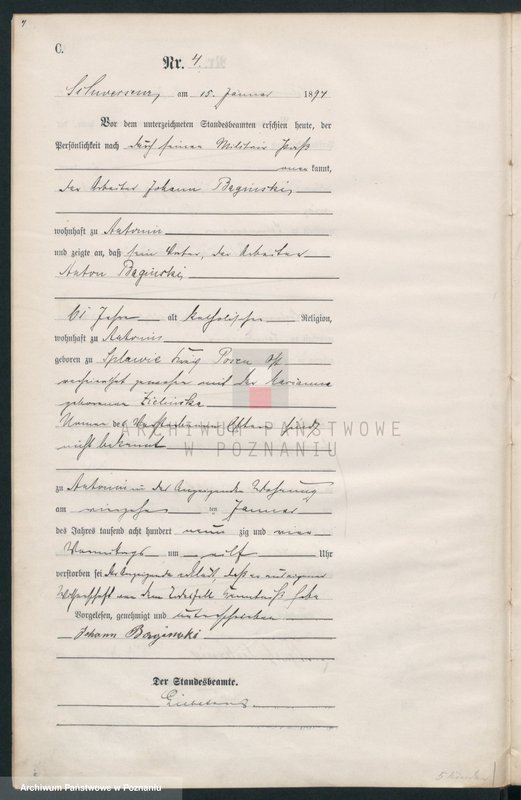 4
C.
Nr. 4.
Schwersenz, am 15. Januar 1894
Vor dem unterzeichneten Standesbeamten erschien heute, der
Persönlichkeit nach durch seinen Militair Paß
anerkannt,
der Arbeiter Johann Baginski,
wohnhaft zu Antonin
und zeigte an, daß sein Vater, der Arbeiter
Anton Baginski,
61 Jahre alt katholischer Religion,
wohnhaft zu Antonin
geboren zu Splawie Kreis Posen Ost
verheirathet gewesen mit der Marianna
geborene Zielinska
Namen der Verstorbenen Eltern sind
nicht bekannt
zu Antonin in der Anzeigenden Wohnung
am vierzehn ten Januar
des Jahres tausend acht hundert neun zig und vier
Vormittags um eilf Uhr
verstorben sei der Anzeigende erklärt, daß er aus eigener
Wissenschaft von dem Todesfall Kenntniß habe
Vorgelesen, genehmigt und unterschrieben
Johann Bagiński
Der Standesbeamte.
ARCHIWUM PAŃSTWOWE
W POZNANIU
Archiwum Państwowe w Poznaniu